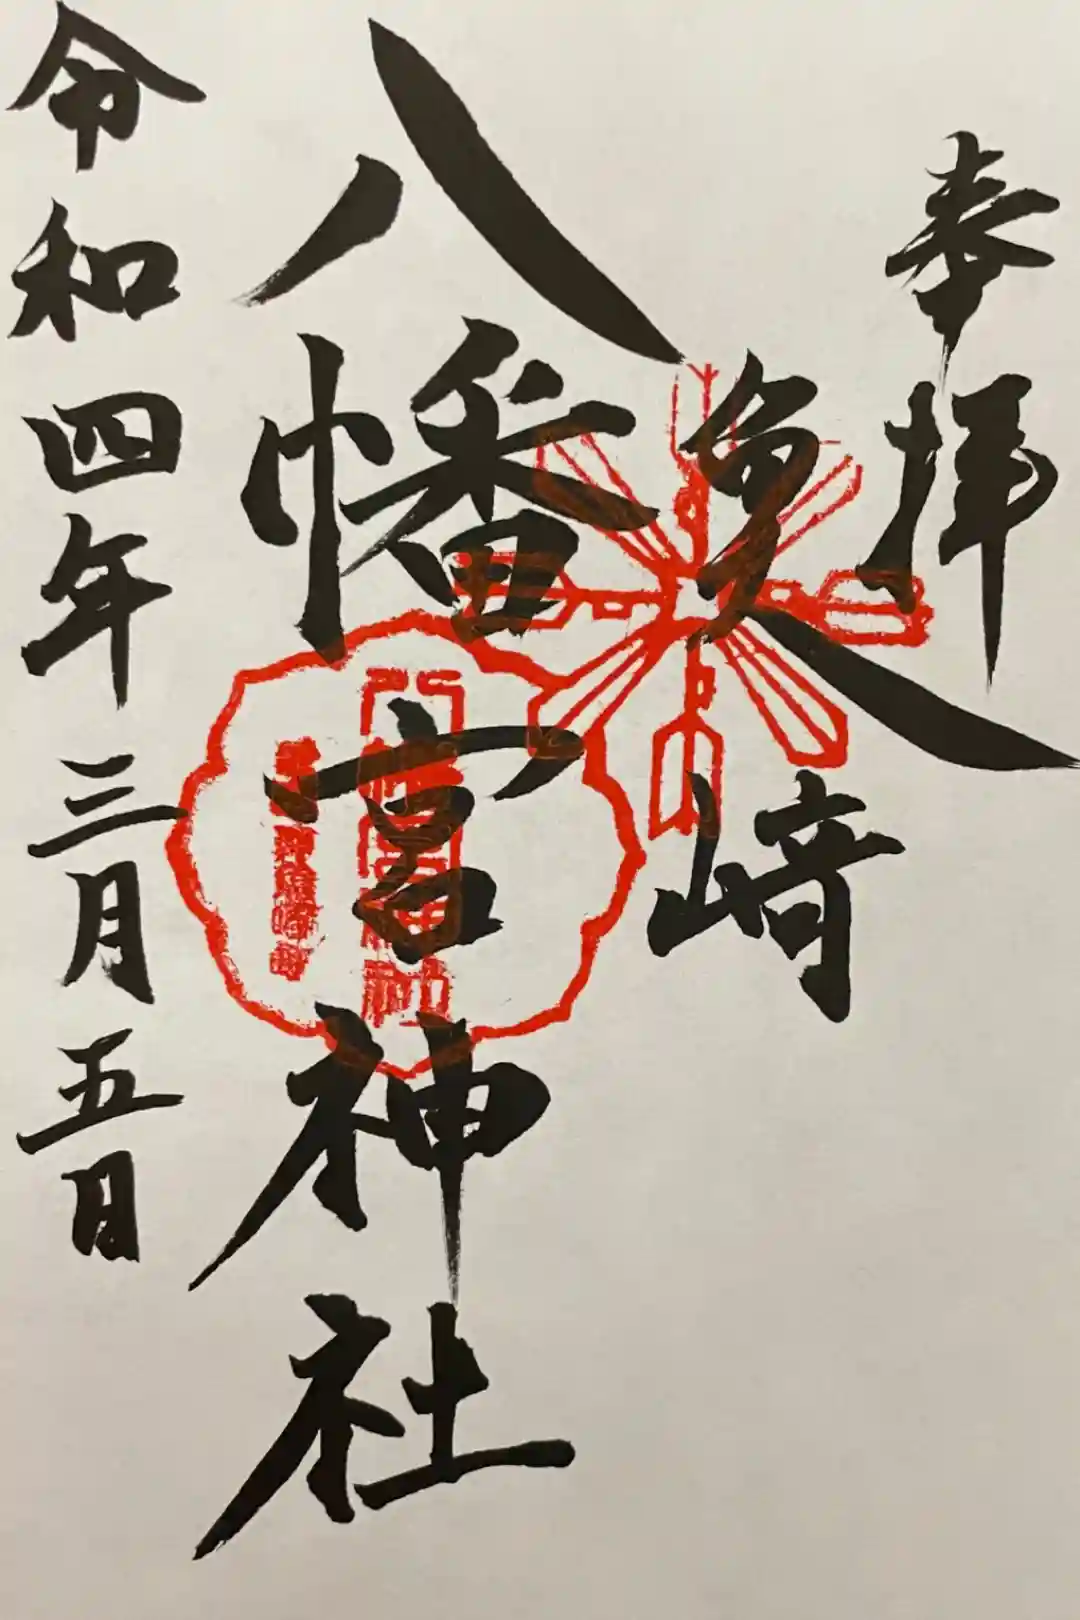 奉拝
魚崎
八幡宮神社
令和四年三月五日